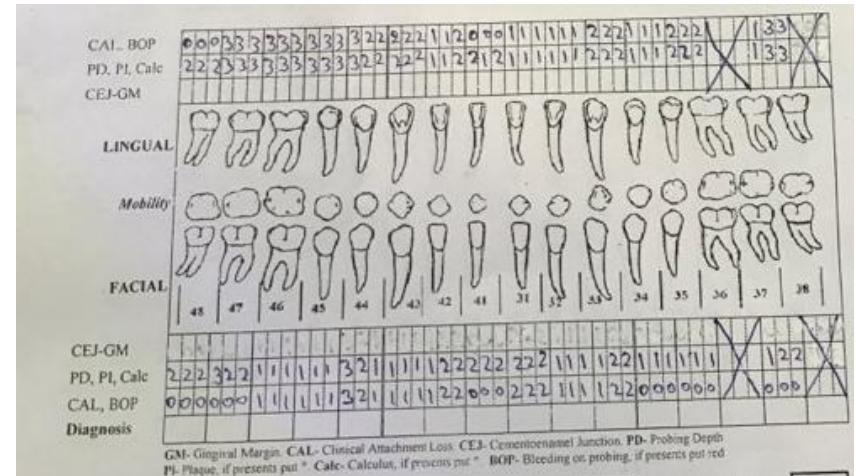 CAL, BOP 0 0 0 3 3 3 3 3 3 3 3 3 3 2 2 2 2 2 1 1 2 0 0 0 1 1 1 1 1 1 2 2 2 1 1 1 2 2 2 1 3 3
PD, PI, Calc 2 2 2 3 3 3 3 3 3 3 3 3 3 2 2 2 2 2 1 1 2 2 1 2 1 1 1 1 1 1 2 2 2 1 1 1 2 2 2 1 3 3
CEJ-GM
LINGUAL
Mobility
FACIAL
48 47 46 45 44 43 42 41 31 32 33 34 35 36 37 38
CEJ-GM
PD, PI, Calc 2 2 2 3 2 2 1 1 1 1 1 1 3 2 1 1 1 1 1 2 2 2 2 2 2 2 2 1 1 1 1 2 2 1 1 1 1 1 1 1 2 2
CAL, BOP 0 0 0 0 0 0 1 1 1 1 1 1 3 2 1 1 1 1 1 2 2 0 0 0 2 2 2 1 1 1 1 2 2 0 0 0 0 0 0 0 0 0
Diagnosis
GM- Gingival Margin. CAL- Clinical Attachment Loss. CEJ- Cementoenamel Junction. PD- Probing Depth
PI- Plaque, if presents put *. Calc- Calculus, if presents put *. BOP- Bleeding on probing, if presents put red